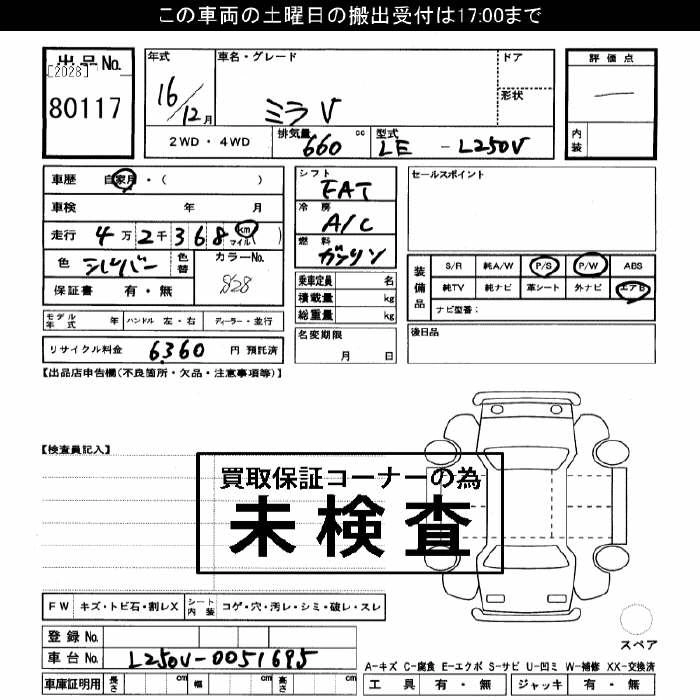 この車両の土曜日の搬出受付は17:00まで
出品No.
[2028]
80117
年式
16/12月
車名・グレード
ミラV
ドア
形状
評価点
内装
2WD・4WD
排気量
660 cc
型式
LE - L250V
車歴 自家用・( )
車検 年 月
走行 4万2千368 km マイル( )
色 シルバー 色替
カラーNo.
S28
保証書 有・無
シフト
FAT
冷房
A/C
燃料
ガソリン
乗車定員 名
積載量 kg
総重量 kg
名変期限
月 日
モデル年式 年 ハンドル 左・右 ディーラー・並行
リサイクル料金 6,360 円 預託済
セールスポイント
装備品
S/R 純A/W P/S P/W ABS
純TV 純ナビ 革シート 外ナビ エアB
ナビ型番:
後日品
【出品店申告欄(不良箇所・欠品・注意事項等)】
【検査員記入】
買取保証コーナーの為
未検査
FW キズ・トビ石・割レX シート内装 コゲ・穴・汚レ・シミ・破レ・スレ
登録No.
車台No. L250V-0051695
車庫証明用 長さ cm 幅 cm 高さ cm
スペア
A-キズ C-腐食 E-エクボ S-サビ U-凹ミ W-補修 XX-交換済
工具 有・無 ジャッキ 有・無